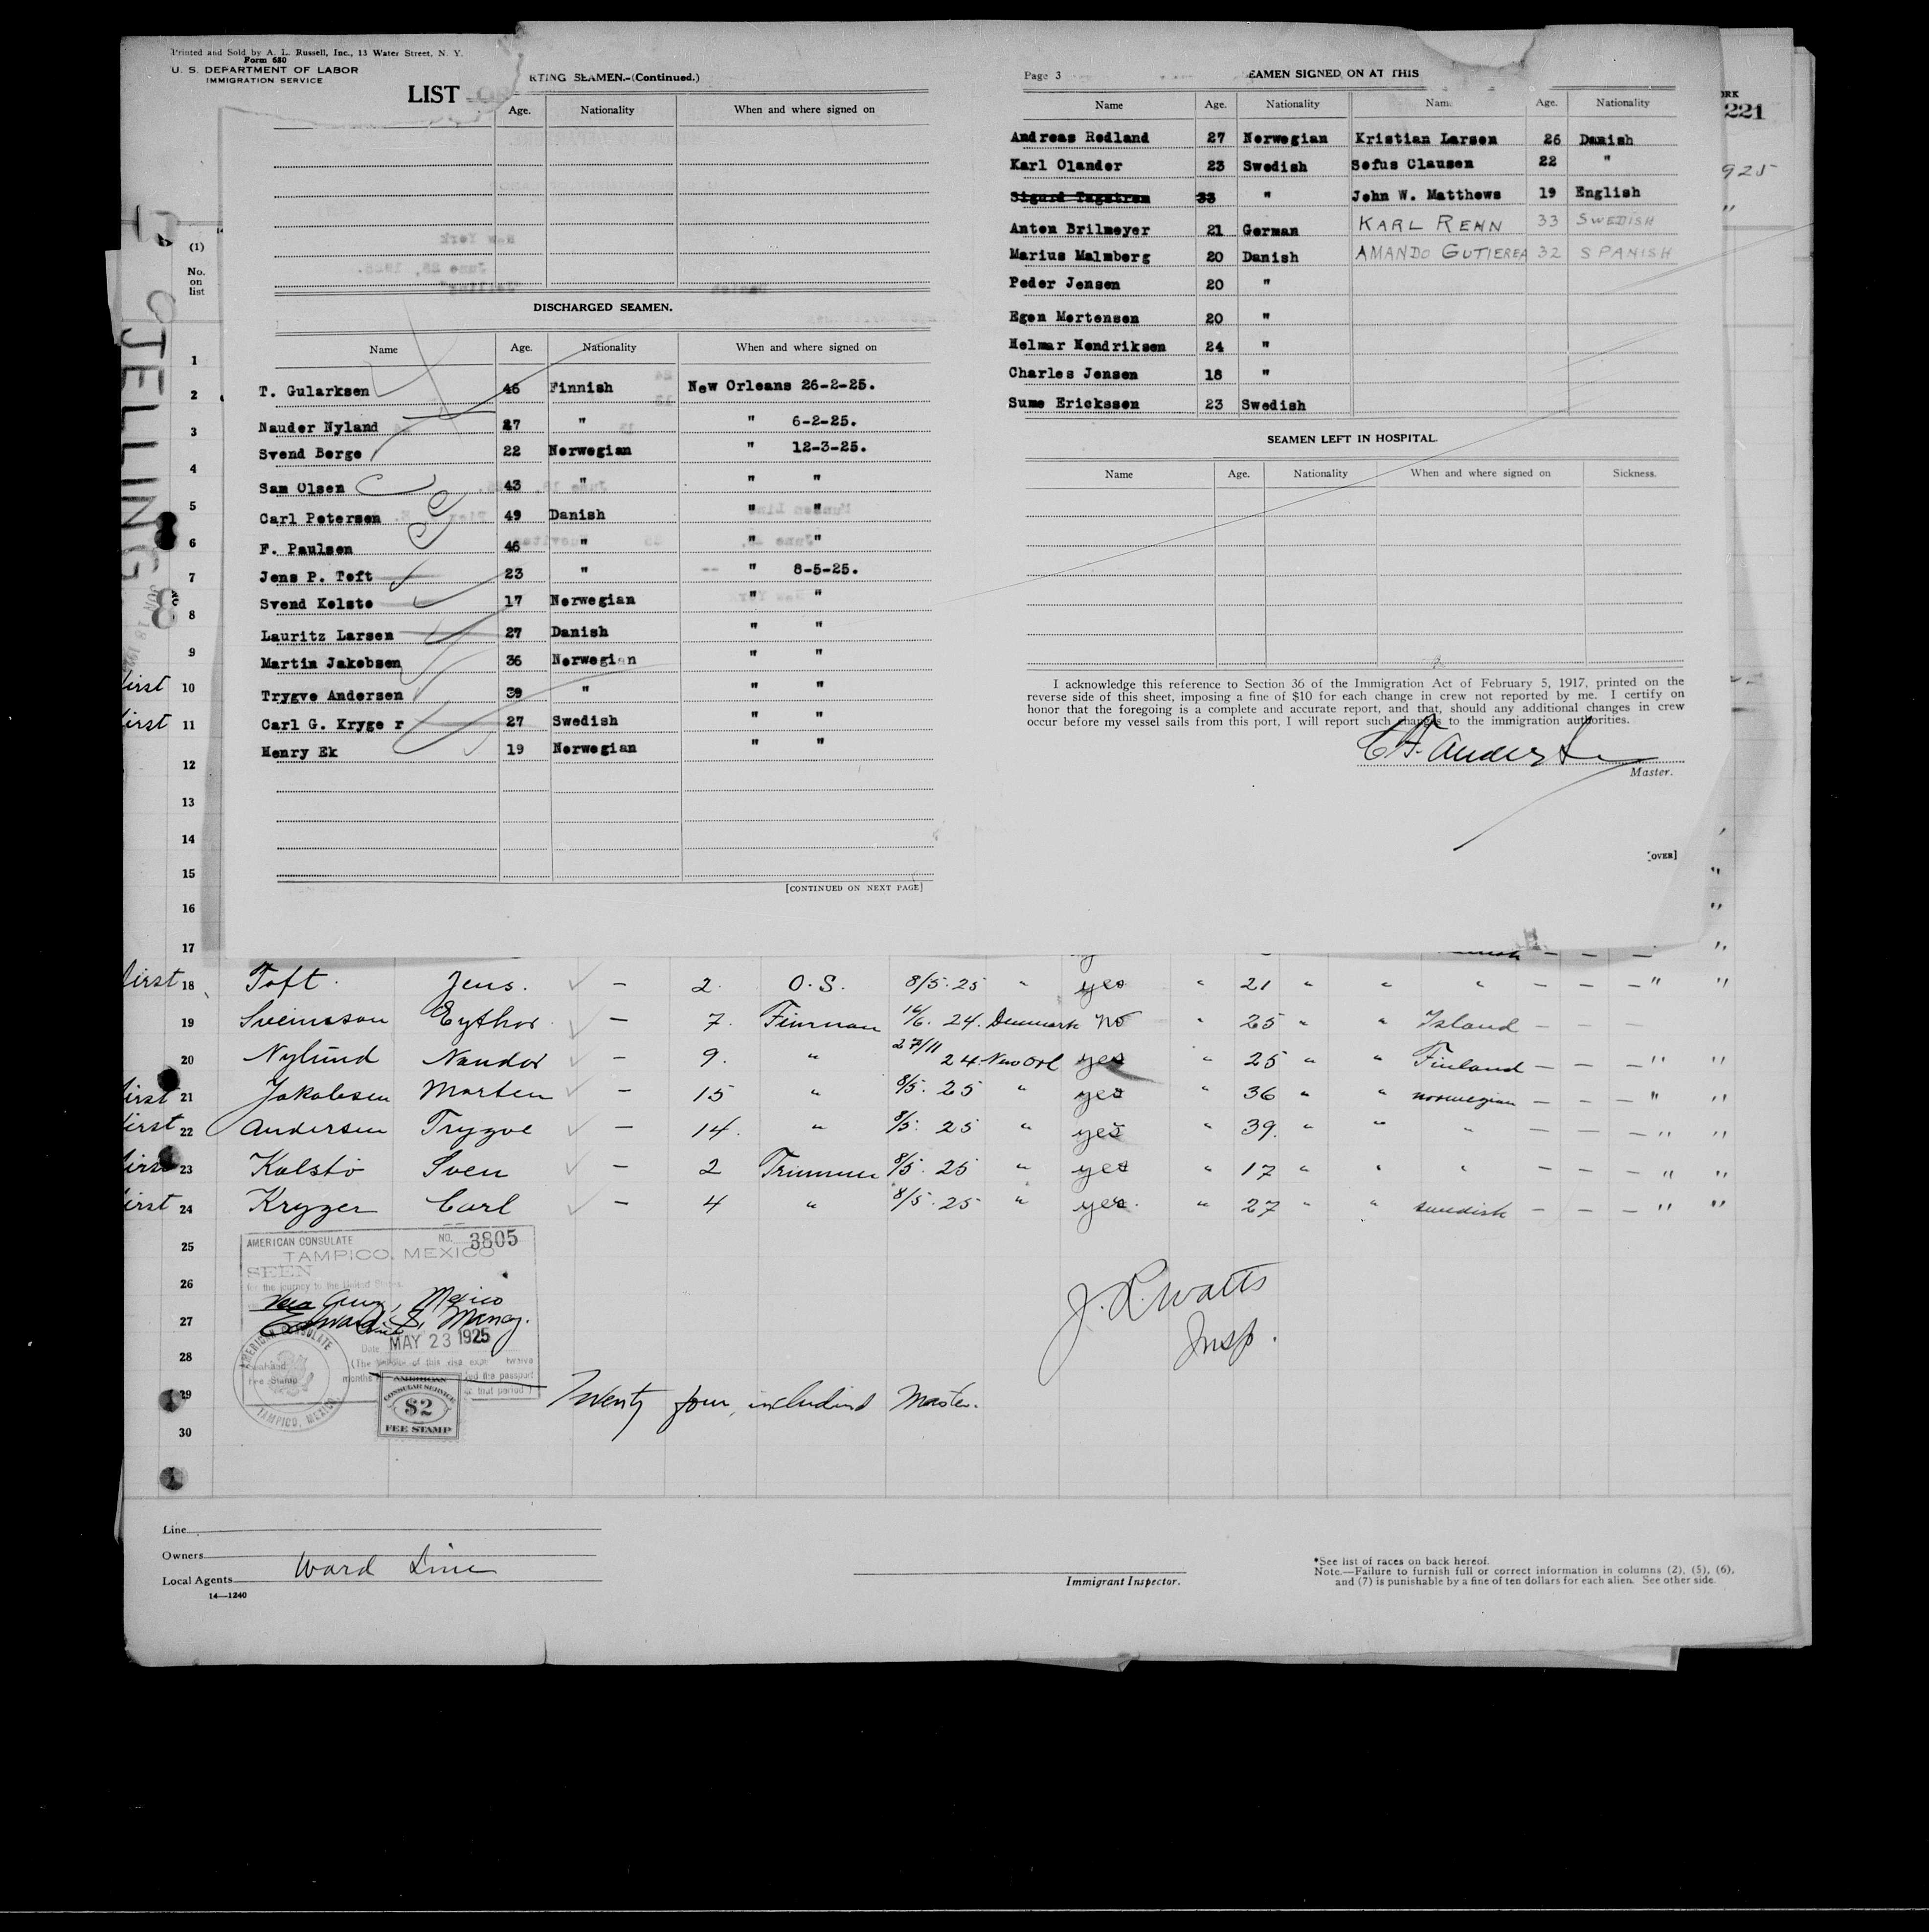 Printed and Sold by A. L. Russell, Inc., 13 Water Street, N. Y.
Form 680
U. S. DEPARTMENT OF LABOR
IMMIGRATION SERVICE
LIST
RTING SEAMEN.-(Continued.)
Age. Nationality When and where signed on
DISCHARGED SEAMEN.
Name Age. Nationality When and where signed on
T. Gularksen 46 Finnish New Orleans 26-2-25.
Nauder Nyland 27 " " 6-2-25.
Svend Berge 22 Norwegian " 12-3-25.
Sam Olsen 43 " " "
Carl Petersen 49 Danish " "
F. Paulsen 46 " " "
Jens P. Toft 23 " " 8-5-25.
Svend Kolste 17 Norwegian " "
Lauritz Larsen 27 Danish " "
Martin Jakobsen 36 Norwegian " "
Trygve Andersen 39 " " "
Carl G. Kryge r 27 Swedish " "
Henry Ek 19 Norwegian " "
[CONTINUED ON NEXT PAGE]
Page 3
EAMEN SIGNED ON AT THIS
Name Age. Nationality Nam Age. Nationality
Andreas Redland 27 Norwegian Kristian Larsen 26 Danish
Karl Olander 23 Swedish Sofus Clausen 22 "
Sigurd Tagstrom 33 " John W. Matthews 19 English
Anton Brilmeyer 21 German KARL RENN 33 SWEDISH
Marius Malmberg 20 Danish AMANDO GUTIEREA 32 SPANISH
Peder Jensen 20 "
Egon Mortensen 20 "
Helmar Hendriksen 24 "
Charles Jensen 18 "
Sume Erickssen 23 Swedish
SEAMEN LEFT IN HOSPITAL.
Name Age. Nationality When and where signed on Sickness.
I acknowledge this reference to Section 36 of the Immigration Act of February 5, 1917, printed on the
reverse side of this sheet, imposing a fine of $10 for each change in crew not reported by me. I certify on
honor that the foregoing is a complete and accurate report, and that, should any additional changes in crew
occur before my vessel sails from this port, I will report such changes to the immigration authorities.
Master.
[OVER]
RK
221
925
JELLING
(1)
No.
on
list
1
2
3
4
5
6
7
8
9
irst 10
first 11
12
13
14
15
16
17
first 18 Toft. Jens. – 2. O.S. 8/5.25 " yes " 21 " " " – – – " "
19 Sveinsson Eythor – 7. Fireman 14/6. 24. Denmark no " 25 " " Island – – –
20 Nylund Nandor – 9. " 27/11 24. New Orl yes " 25 " " Finland – – – " "
first 21 Jakobsen Morten – 15 " 8/5. 25 " yes " 36 " " norwegian – – – " "
first 22 Andersen Trygve – 14. " 8/5. 25 " yes " 39. " " " – – – " "
first 23 Kolstö Sven – 2 Trimmer 8/5. 25 " yes " 17 " " " – – – " "
first 24 Kryger Carl – 4 " 8/5. 25 " yes. " 27 " " swedish – – – " "
25
26
27
28
29
30
AMERICAN CONSULATE NO. 3805
TAMPICO, MEXICO
SEEN
for the journey to the United States
Vera Cruz, Mexico
Date MAY 23 1925
AMERICAN CONSULATE
TAMPICO, MEXICO
AMERICAN
CONSULAR SERVICE
$2
FEE STAMP
J. R. Watts
Insp.
Twenty four, includind Master.
Line
Owners
Ward Line
Local Agents
14—1240
Immigrant Inspector.
*See list of races on back hereof.
Note.—Failure to furnish full or correct information in columns (2), (5), (6),
and (7) is punishable by a fine of ten dollars for each alien. See other side.